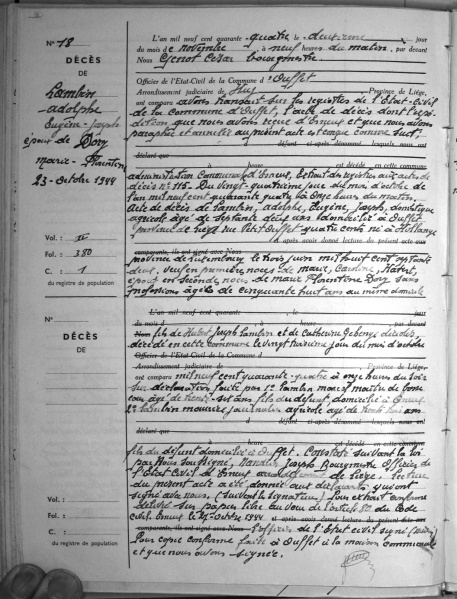 N° 18
DÉCÈS
DE
Lambin
adolphe
Eugène-Joseph
époux de Dory
Marie-Florentine
23-octobre 1944
Vol. : II
Fol. : 380
C. : 1
du registre de population
L'an mil neuf cent quarante-quatre le deuxième jour
du mois de novembre, à neuf heures du matin, par devant
Nous Genot César bourgmestre
Officier de l'Etat-Civil de la Commune d'Ouffet
Arrondissement judiciaire de Huy Province de Liège,
ont comparu avons transcrit sur les registres de l'Etat-Civil
de la Commune d'Ouffet, l'acte de décès dont l'expé-
dition que nous avons reçue d'Ensival et que nous avons
paraphée et annexée au présent acte est conçue comme suit,
défunt et ci-après dénommé lesquels nous ont
déclaré que
à heure est décédé en cette commune
administration Communale extrait du registre aux actes de
décès n° 115. Du vingt-quatrième jour du mois d'octobre de
l'an mil neuf cent quarante quatre à onze heures du matin.
acte de décès de Lambin, Adolphe, Eugène, Joseph, domestique
agricole âgé de septante deux ans domicilié à Ouffet
province de Liège rue Petit Ouffet quatre cents né à Hollange
et après avoir donné lecture du présent acte aux
comparants, ils ont signé avec Nous
province de Luxembourg le trois juin mil huit cent septante
deux, veuf en premières noces de Marie, Caroline,
époux en secondes noces de Marie Florentine Dory sans
profession âgée de cinquante huit ans au même domicile
N°
DÉCÈS
DE
Vol. :
Fol. :
C. :
du registre de population
L'an mil neuf cent quarante- le jour
du mois d , à heures du , par devant
Nous fils de Hubert Joseph Lambin et de Catherine décédés,
décédé en cette commune le vingt troisième jour du mois d'octobre
Officier de l'Etat-Civil de la Commune d
Arrondissement judiciaire de Province de Liège,
ont comparu mil neuf cent quarante-quatre à onze heures du soir
sur déclaration faite par 1° Lambin Marcel
âgé de trente-six ans fils du défunt domicilié à
2° Lambin Maurice journalier agricole âgé de trente ans
défunt et ci-après dénommé lesquels nous ont
déclaré que
à heure est décédé en cette commune
fils du défunt domicilié à Ouffet. Constaté suivant la loi
par Nous Soussigné, Joseph Bourgmestre Officier de
l'Etat Civil de de Liège. Lecture
du présent acte a été donnée aux déclarants qui ont
signé avec nous. (Suivent les signatures) Pour extrait conforme
délivré sur papier libre au vœu de l'article 80 du Code
civil. le octobre 1944 et après avoir donné lecture du présent acte aux
comparants, ils ont signé avec Nous l'officier de l'Etat civil signé
Pour copie conforme faite à Ouffet à la maison communale
et que nous avons signée.